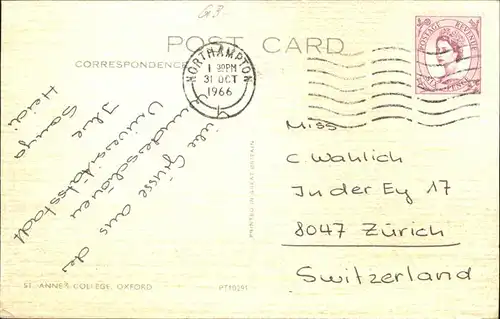 G3
POST CARD
CORRESPONDENCE
NORTHAMPTON
1 30PM
31 OCT
1966
POSTAGE REVENUE
Viele Grüsse aus der
wunderschönen
Universitätsstadt
Ihre
Heidi
Miss
C. Wahlich
In der Ey 17
8047 Zürich
Switzerland
PRINTED IN GREAT BRITAIN
ST. ANNE'S COLLEGE, OXFORD
PT10291